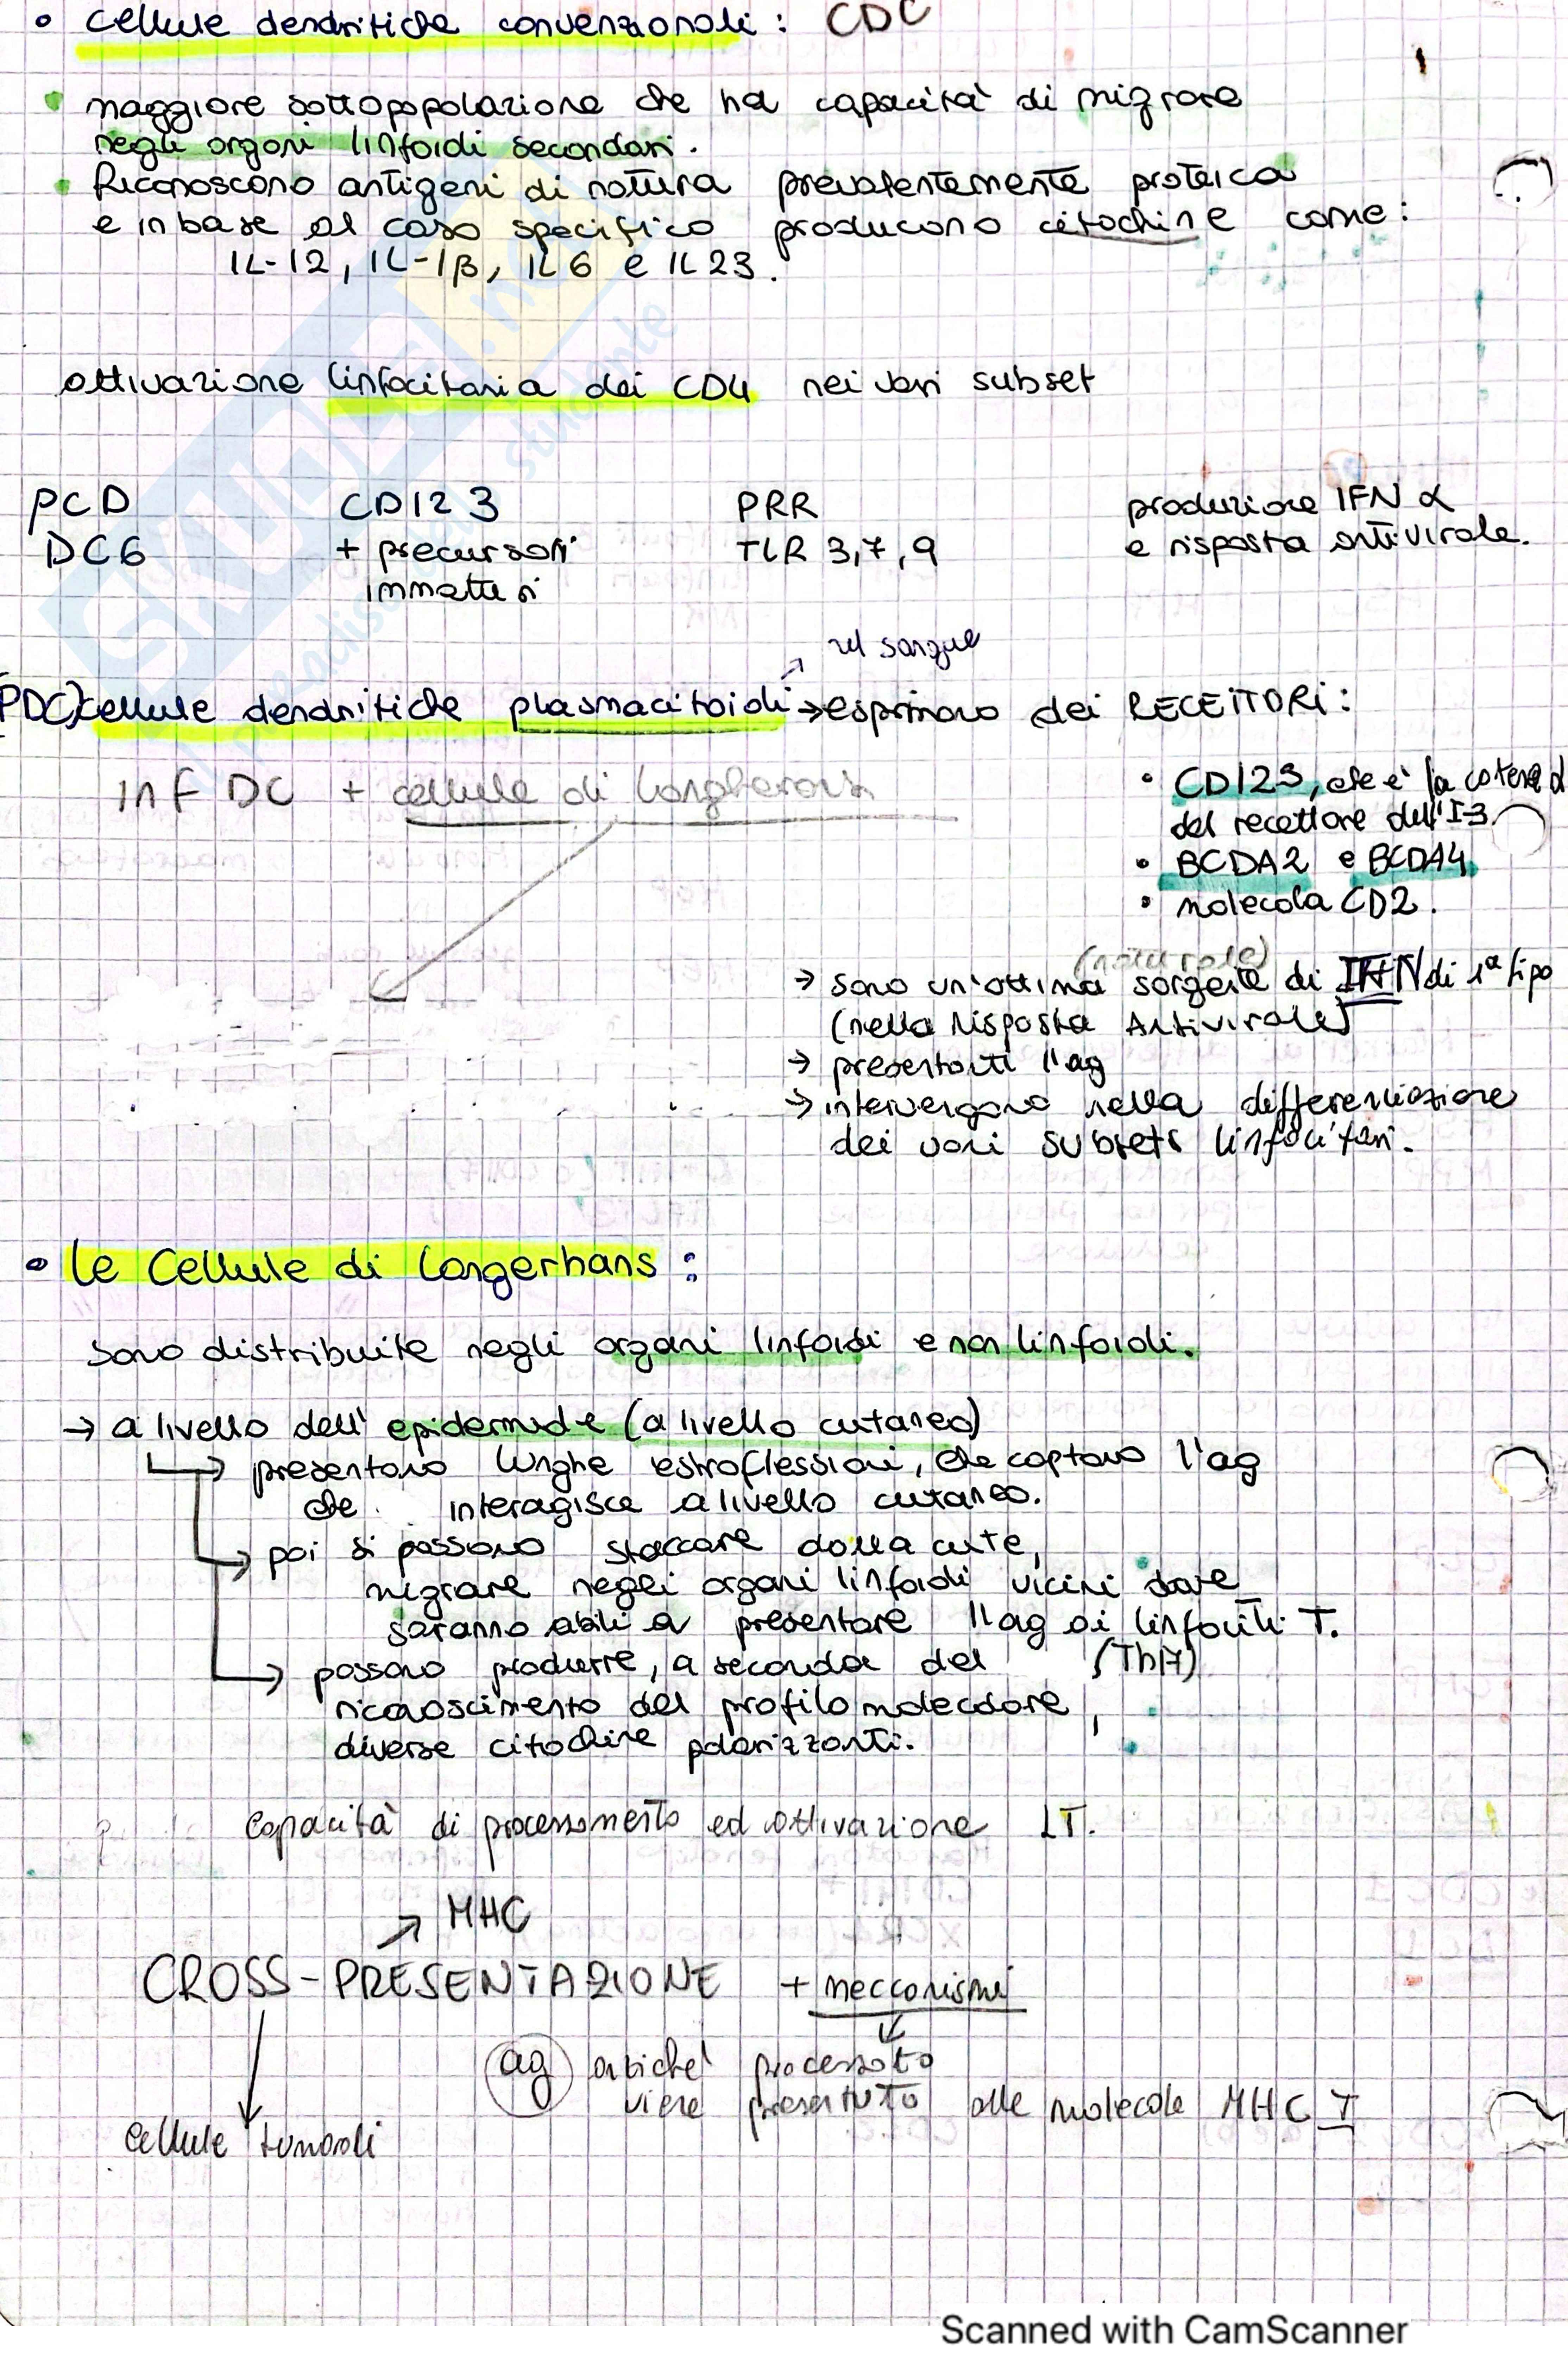 • cellule dendritiche convenzionali : CDC
maggiore sottopopolazione che ha capacità di migrare
negli organi linfoidi secondari.
Riconoscono antigeni di natura prevalentemente proteica
e in base al caso specifico producono citochine come:
IL-12, IL-1β, IL6 e IL23.
attivazione linfocitaria dei CD4 nei vari subset
PCD CD123 PRR produzione IFN α
DC6 + precursori TLR 3,7,9 e risposta antivirale.
immaturi
nel sangue
(PDC) cellule dendritiche plasmacitoidi → esprimono dei RECETTORI:
inf DC + cellule di Langherans
• CD123, che è la catena α
del recettore dell'I-3.
• BCDA2 e BCDA4
• molecola CD2.
(naturale)
→ sono un'ottima sorgente di IFN di 1ª tipo
(nella risposta Antivirale)
→ presentanti l'ag
→ intervengono nella differenziazione
dei vari subsets linfocitari.
• le Cellule di Langerhans :
sono distribuite negli organi linfoidi e non linfoidi.
→ a livello dell' epidermide (a livello cutaneo)
→ presentano lunghe estroflessioni, che captano l'ag
che interagisce a livello cutaneo.
→ poi si possono staccare dalla cute,
migrare negli organi linfoidi vicini dove
saranno abili a presentare l'ag ai linfociti T.
→ possono produrre, a seconda del (Th17)
riconoscimento del profilo molecolare,
diverse citochine polarizzanti.
Capacità di processamento ed attivazione LT.
↗ MHC
CROSS-PRESENTAZIONE + meccanismi
ag anziché processato
viene presentato alle molecole MHC I
Cellule tumorali
Scanned with CamScanner